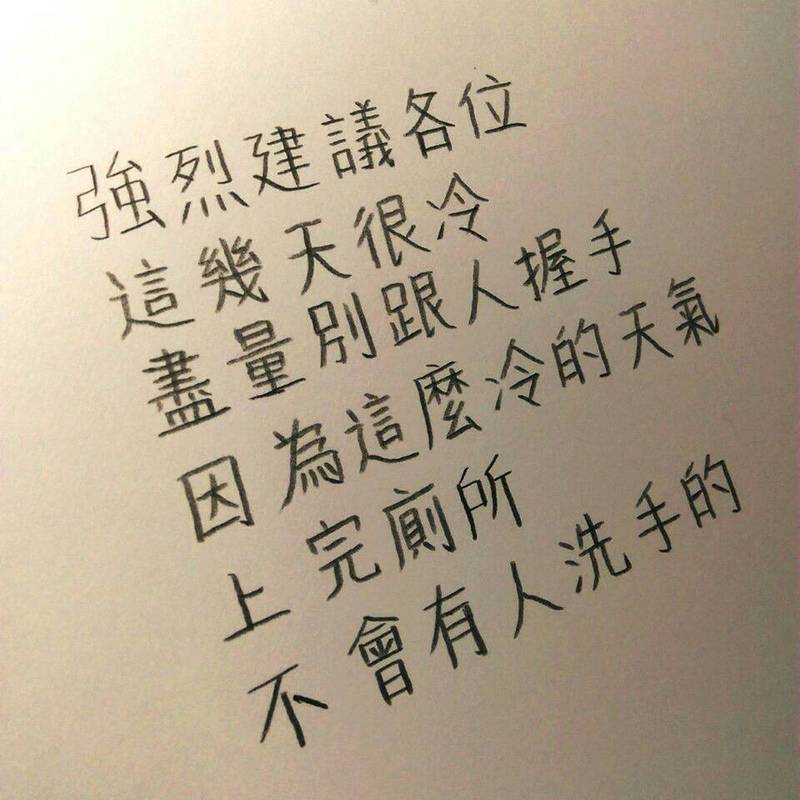 強烈建議各位
這幾天很冷
盡量別跟人握手
因為這麼冷的天氣
上完廁所
不會有人洗手的